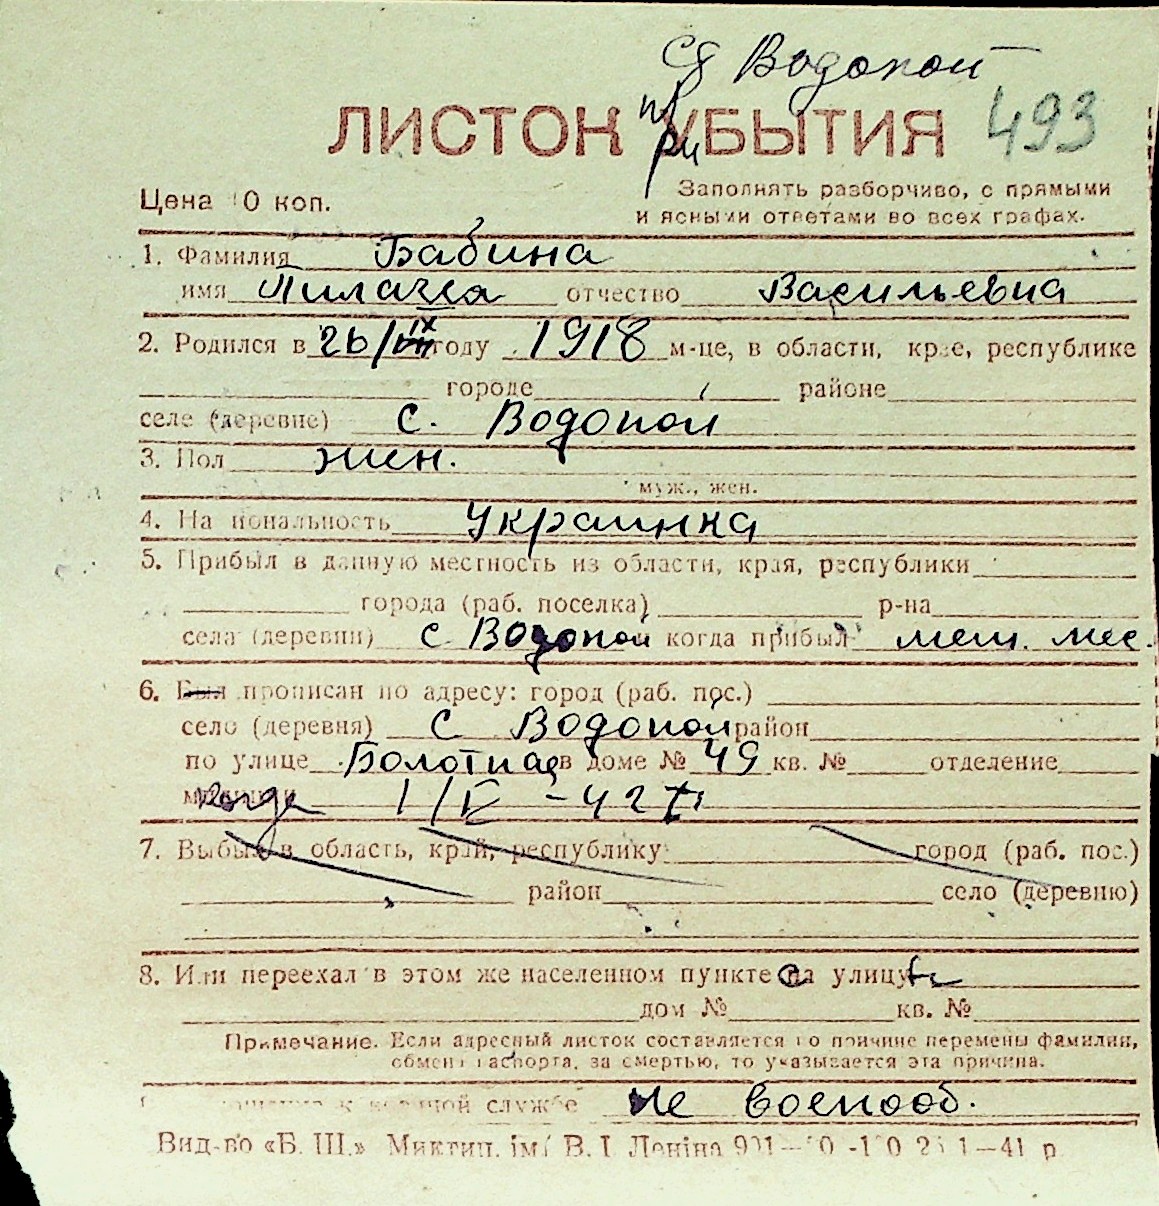 с Водопой
ЛИСТОК УБЫТИЯ 493
при
Цена 10 коп.
Заполнять разборчиво, с прямыми
и ясными ответами во всех графах.
1. Фамилия Бабина
имя отчество Васильевна
2. Родился в 26/IX году 1918 м-це, в области, крае, республике
городе районе
селе (деревне) с. Водопой
3. Пол жен.
муж., жен.
4. Национальность Украинка
5. Прибыл в данную местность из области, края, республики
города (раб. поселка) р-на
села (деревни) с Водопой когда прибыл мест.
6. Был прописан по адресу: город (раб. пос.)
село (деревня) с Водопой район
по улице Болотная в доме № 49 кв. № отделение
милиции когда
7. Выбыл в область, край, республику город (раб. пос.)
район село (деревню)
8. Или переехал в этом же населенном пункте на улицу
дом № кв. №
Примечание. Если адресный листок составляется по причине перемены фамилии,
обмена паспорта, за смертью, то указывается эта причина.
к военной службе Не военооб.
Вид-во «Б. Ш.» Миктип. ім/ В. І. Леніна